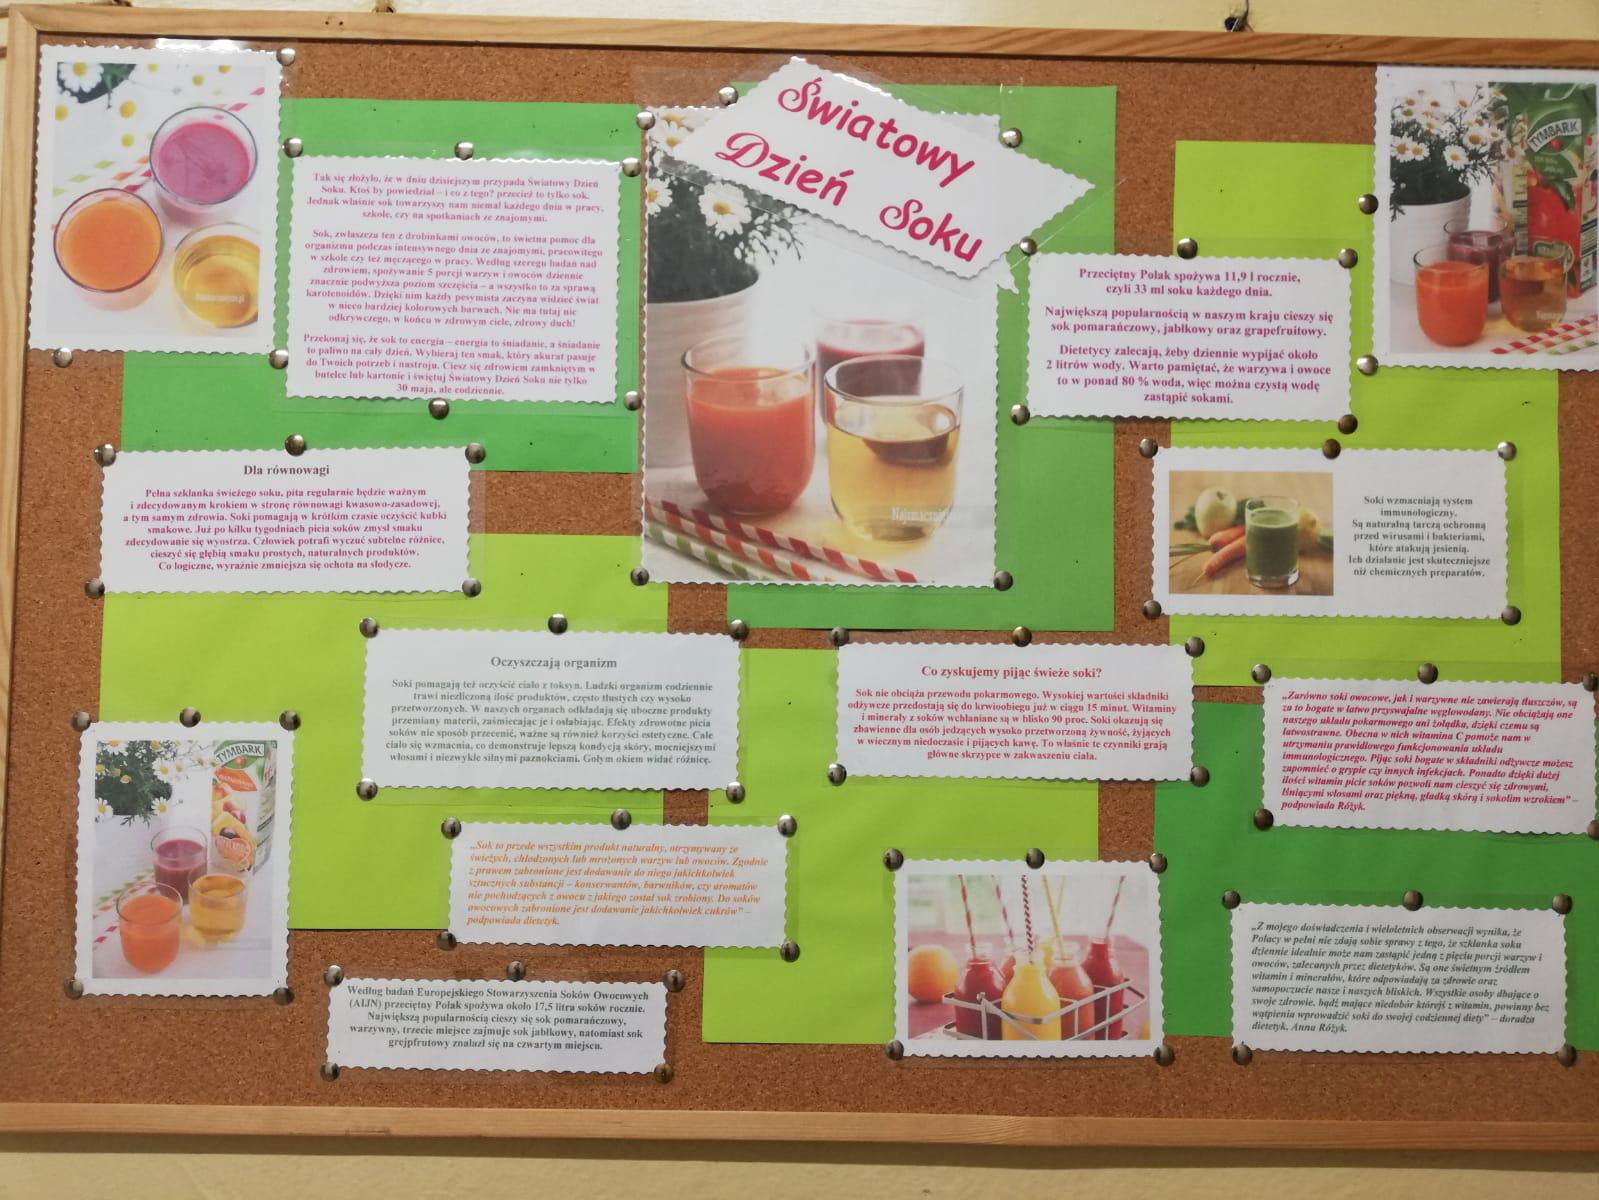 Światowy
Dzień Soku
Tak się złożyło, że w dniu dzisiejszym przypada Światowy Dzień
Soku. Ktoś by powiedział – i co z tego? przecież to tylko sok.
Jednak właśnie sok towarzyszy nam niemal każdego dnia w pracy,
szkole, czy na spotkaniach ze znajomymi.
Sok, zwłaszcza ten z drobinkami owoców, to świetna pomoc dla
organizmu podczas intensywnego dnia ze znajomymi, pracowitego
w szkole czy też męczącego w pracy. Według szeregu badań nad
zdrowiem, spożywanie 5 porcji warzyw i owoców dziennie
znacznie podwyższa poziom szczęścia – a wszystko to za sprawą
karotenoidów. Dzięki nim każdy pesymista zaczyna widzieć świat
w nieco bardziej kolorowych barwach. Nie ma tutaj nic
odkrywczego, w końcu w zdrowym ciele, zdrowy duch!
Przekonaj się, że sok to energia – energia to śniadanie, a śniadanie
to paliwo na cały dzień. Wybieraj ten smak, który akurat pasuje
do Twoich potrzeb i nastroju. Ciesz się zdrowiem zamkniętym w
butelce lub kartonie i świętuj Światowy Dzień Soku nie tylko
30 maja, ale codziennie.
Przeciętny Polak spożywa 11,9 l rocznie,
czyli 33 ml soku każdego dnia.
Największą popularnością w naszym kraju cieszy się
sok pomarańczowy, jabłkowy oraz grapefruitowy.
Dietetycy zalecają, żeby dziennie wypijać około
2 litrów wody. Warto pamiętać, że warzywa i owoce
to w ponad 80 % woda, więc można czystą wodę
zastąpić sokami.
TYMBARK
Dla równowagi
Pełna szklanka świeżego soku, pita regularnie będzie ważnym
i zdecydowanym krokiem w stronę równowagi kwasowo-zasadowej,
a tym samym zdrowia. Soki pomagają w krótkim czasie oczyścić kubki
smakowe. Już po kilku tygodniach picia soków zmysł smaku
zdecydowanie się wyostrza. Człowiek potrafi wyczuć subtelne różnice,
cieszyć się głębią smaku prostych, naturalnych produktów.
Co logiczne, wyraźnie zmniejsza się ochota na słodycze.
Soki wzmacniają system
immunologiczny.
Są naturalną tarczą ochronną
przed wirusami i bakteriami,
które atakują jesienią.
Ich działanie jest skuteczniejsze
niż chemicznych preparatów.
Oczyszczają organizm
Soki pomagają też oczyścić ciało z toksyn. Ludzki organizm codziennie
trawi niezliczoną ilość produktów, często tłustych czy wysoko
przetworzonych. W naszych organach odkładają się uboczne produkty
przemiany materii, zaśmiecając je i osłabiając. Efekty zdrowotne picia
soków nie sposób przecenić, ważne są również korzyści estetyczne. Całe
ciało się wzmacnia, co demonstruje lepszą kondycją skóry, mocniejszymi
włosami i niezwykle silnymi paznokciami. Gołym okiem widać różnicę.
Co zyskujemy pijąc świeże soki?
Sok nie obciąża przewodu pokarmowego. Wysokiej wartości składniki
odżywcze przedostają się do krwioobiegu już w ciągu 15 minut. Witaminy
i minerały z soków wchłaniane są w blisko 90 proc. Soki okazują się
zbawienne dla osób jedzących wysoko przetworzoną żywność, żyjących
w wiecznym niedoczasie i pijących kawę. To właśnie te czynniki grają
główne skrzypce w zakwaszeniu ciała.
„Zarówno soki owocowe, jak i warzywne nie zawierają tłuszczów, są
za to bogate w łatwo przyswajalne węglowodany. Nie obciążają one
naszego układu pokarmowego ani żołądka, dzięki czemu są
łatwostrawne. Obecna w nich witamina C pomoże nam w
utrzymaniu prawidłowego funkcjonowania układu
immunologicznego. Pijąc soki bogate w składniki odżywcze możesz
zapomnieć o grypie czy innych infekcjach. Ponadto dzięki dużej
ilości witamin picie soków pozwoli nam cieszyć się zdrowymi,
lśniącymi włosami oraz piękną, gładką skórą i sokolim wzrokiem” –
podpowiada Różyk.
TYMBARK
„Sok to przede wszystkim produkt naturalny, otrzymywany ze
świeżych, chłodzonych lub mrożonych warzyw lub owoców. Zgodnie
z prawem zabronione jest dodawanie do niego jakichkolwiek
sztucznych substancji – konserwantów, barwników, czy aromatów
nie pochodzących z owocu z jakiego został sok zrobiony. Do soków
owocowych zabronione jest dodawanie jakichkolwiek cukrów” –
podpowiada dietetyk.
„Z mojego doświadczenia i wieloletnich obserwacji wynika, że
Polacy w pełni nie zdają sobie sprawy z tego, że szklanka soku
dziennie idealnie może nam zastąpić jedną z pięciu porcji warzyw i
owoców, zalecanych przez dietetyków. Są one świetnym źródłem
witamin i minerałów, które odpowiadają za zdrowie oraz
samopoczucie nasze i naszych bliskich. Wszystkie osoby dbające o
swoje zdrowie, bądź mające niedobór którejś z witamin, powinny bez
wątpienia wprowadzić soki do swojej codziennej diety” – doradza
dietetyk, Anna Różyk.
Według badań Europejskiego Stowarzyszenia Soków Owocowych
(AIJN) przeciętny Polak spożywa około 17,5 litra soków rocznie.
Największą popularnością cieszy się sok pomarańczowy,
warzywny, trzecie miejsce zajmuje sok jabłkowy, natomiast sok
grejpfrutowy znalazł się na czwartym miejscu.